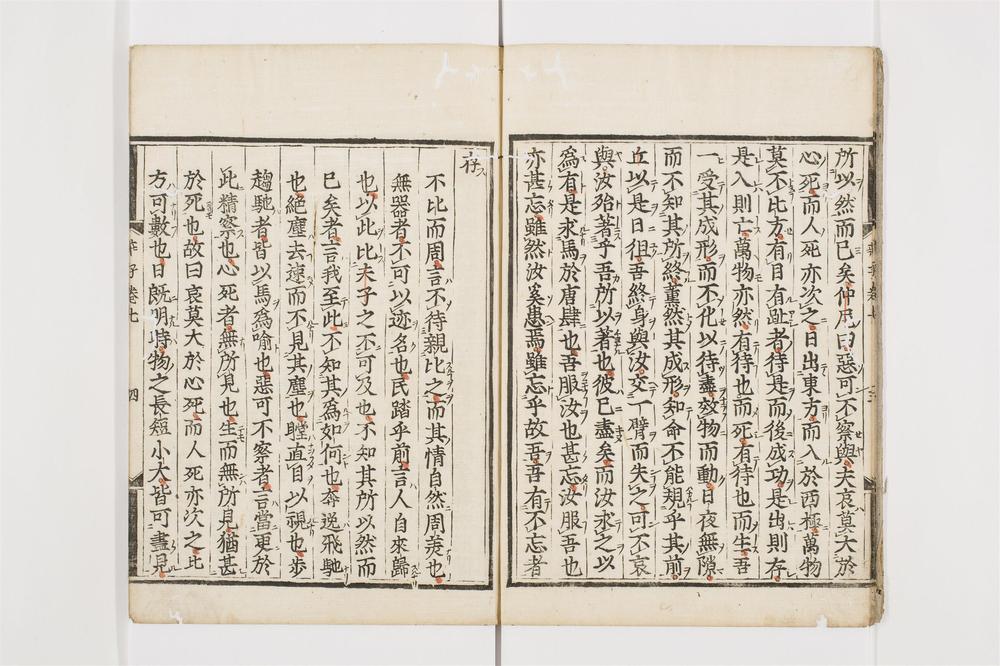 所以然而已矣仲尼曰惡可不察與夫哀莫大於
心死而人死亦次之日出東方而入於西極萬物
莫不比方有目有趾者待是而後成功是出則存
是入則亡萬物亦然有待也而死有待也而生吾
一受其成形而不化以待盡效物而動日夜無隙
而不知其所終薫然其成形知命不能規乎其前
丘以是日徂吾終身與汝交一臂而失之可不哀
與汝殆著乎吾所以著也彼已盡矣而汝求之以
爲有是求馬於唐肆也吾服汝也甚忘汝服吾也
亦甚忘雖然汝奚患焉雖忘乎故吾吾有不忘者
存
不比而周言不待親比之而其情自然周羙也
無器者不可以迹名也民蹈乎前言人自來歸
也以此比夫子之不可及也不知其所以然而
已矣者言我至此不知其爲如何也奔逸飛馳
也絶塵去速而不見其塵也瞠直目以視也步
趨馳者皆以馬爲喻也惡可不察者言當更於
此精察也心死者無所見也生而無所見猶甚
於死也故曰哀莫大於心死而人死亦次之此
方可數也日既明時物之長短小大皆可盡見
莊子卷七
四